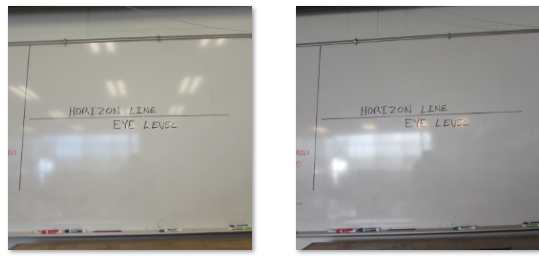 HORIZON LINE
EYE LEVEL
HORIZON LINE
EYE LEVEL